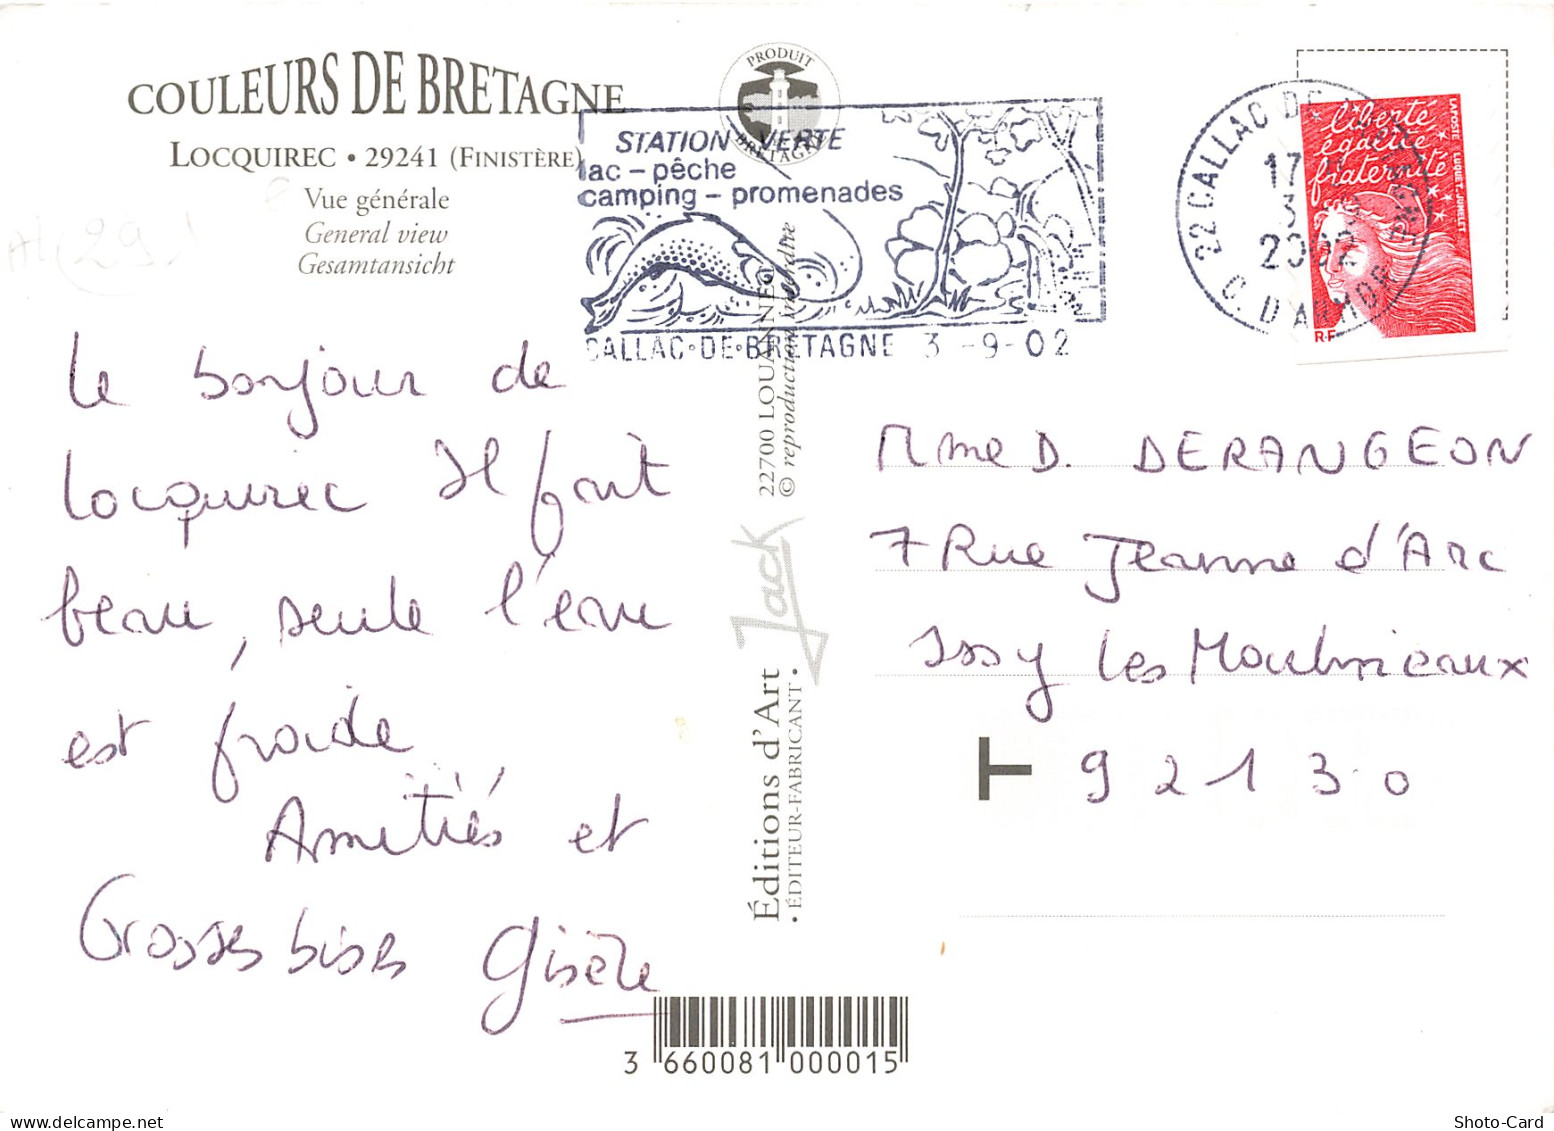 COULEURS DE BRETAGNE
LOCQUIREC • 29241 (FINISTÈRE)
Vue générale
General view
Gesamtansicht
(29)
PRODUIT
BRETAGNE
STATION VERTE
lac - pêche
camping - promenades
CALLAC-DE-BRETAGNE 3 -9-02
22 CALLAC DE
17
3 9
2002
C. D'ARMOR
liberté
égalité
fraternité
LA POSTE
LUQUET-JUMELET
R.F
Le bonjour de
Locquirec Il fait
beau, seule l'eau
est froide
Amitiés et
Grosses bises Gisèle
Mme D. DERANGEON
7 Rue Jeanne d'Arc
Issy les Moulineaux
T 92130
Éditions d'Art Jack 22700 LOUANNEC
• ÉDITEUR-FABRICANT • © reproduction interdite
3 660081 000015
Shoto-Card